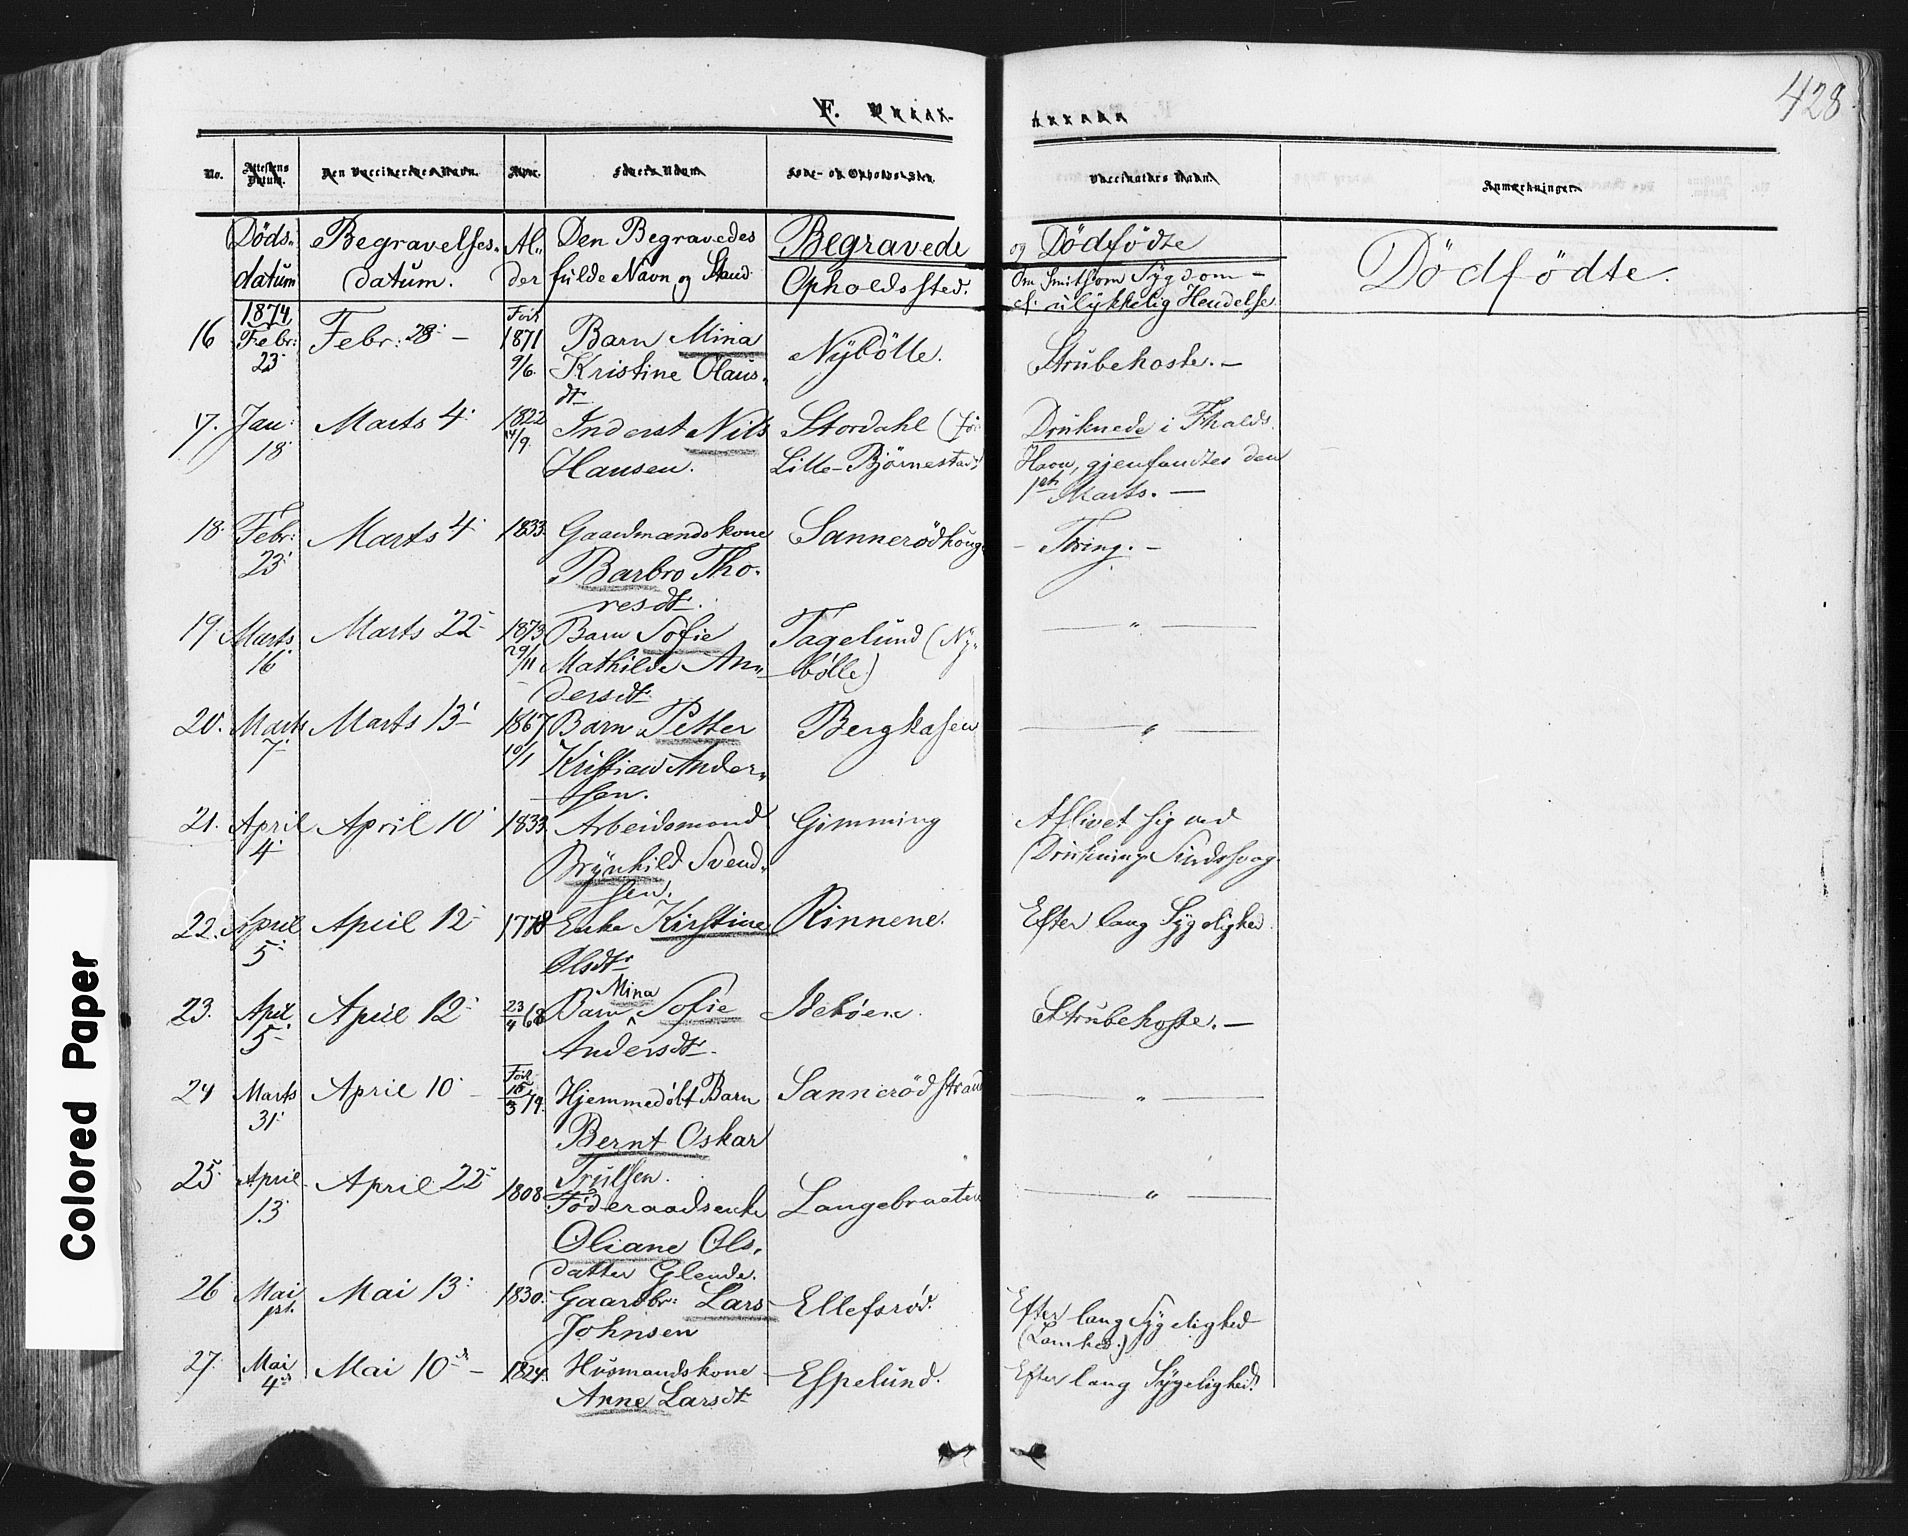 428.
F.
No. Attestens Datum. Den Vaccineredes Navn. Alder. Faders Navn. Føde- og Opholds-Sted. Vaccinators Navn. Anmærkninger.
Döds- Begravelses- Al- Den Begravedes Begravede og Dödfödte Dödfödte.
datum datum. der fulde Navn og Stand Opholdssted. Om Smitsom Sygdom –
el. ulykkelig Hendelse
1874 Født
16 Febr: Febr: 28 – 1871 Barn Mina Nybölle. Strubehoste. –
23 9/6. Kristine Olaus-
dt.
17. Jan: Marts 4. 1822 Inderst Nils Stordahl Druknede i Fhalds
18 Hansen. Lille-Björnestad Havn, gjenfandtes den
1st Marts. –
18. Febr: Marts 4. 1833. Gaardmandskone Sannerödhöug – Tæring. –
23 Barbro Tho-
resdt.
19 Marts Marts 22 1873 Barn Sofie Fagelund (Ny- — " —
16 29/11 Mathilde An- bölle)
dersdt.
20. Marts Marts 13 1867 Barn Petter Bergkasen — " —
7 10/1 Kristian Ander-
sen.
21. April April 10 1833 Arbeidsmand Gimming Aflivet sig ved
4 Brynhild Svend- Drukning. Sindssvag.
sen.
22. April April 12 1778 Enke Kirstine Rinnene. Efter lang Sygelighed.
5 Olsdt.
Mina
23. April April 12 23/4 68 Barn ^ Sofie Strubehoste. –
5 Andersdt.
Født
24 Marts April 10 – 15/3 74. Hjemmedöbt Barn Sannerödstrand — " —
31 Bernt Oskar
Trulsen.
25. April April 22 1808 Föderaadsenke Langebraaten — " —
13 Oliane Ols-
datter Glende.
26 Mai Mai 13 1830. Gaardbr: Lars Ellefsröd. Efter lang Sygelighed
1st. Johnsen
27. Mai Mai 10 – 1824. Husmandskone Espelund. Efter lang Sygelighed.
4 Anne Larsdt
Colored Paper